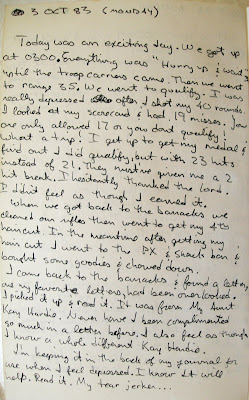 3 OCT 83 (MONDAY)
Today was an exciting day. We got up
at 0300. Everything was "Hurry up & wait"
until the troop carriers came. Then we went
to range 35. We went to qualify. I was
really depressed after I shot my 40 rounds.
I looked at my scorecard & had 19 misses. You
are only allowed 17 or you don't qualify.
What a trip! I get up to get my medal &
find out I did qualify, but with 23 hits
instead of 21. They must've given me a 2
hit break. I hesitantly thanked the Lord.
I didn't feel as though I earned it.
When we got back to the barracks we
cleaned our rifles then went to get my 4th
haircut. In the meantime after getting my
hair cut I went to the PX & snack bar &
bought some goodies & chowed down.
I came back to the barracks & found a letter,
one my favorite letters, had been overlooked.
I picked it up & read it. It was from My Aunt
Kay Hardie. Never have I been complimented
so much in a letter before. I also feel as though
I know a whole different Kay Hardie.
I'm keeping it in the back of my journal for
use when I feel depressed. I know it will
help. Read it. My tear jerker...